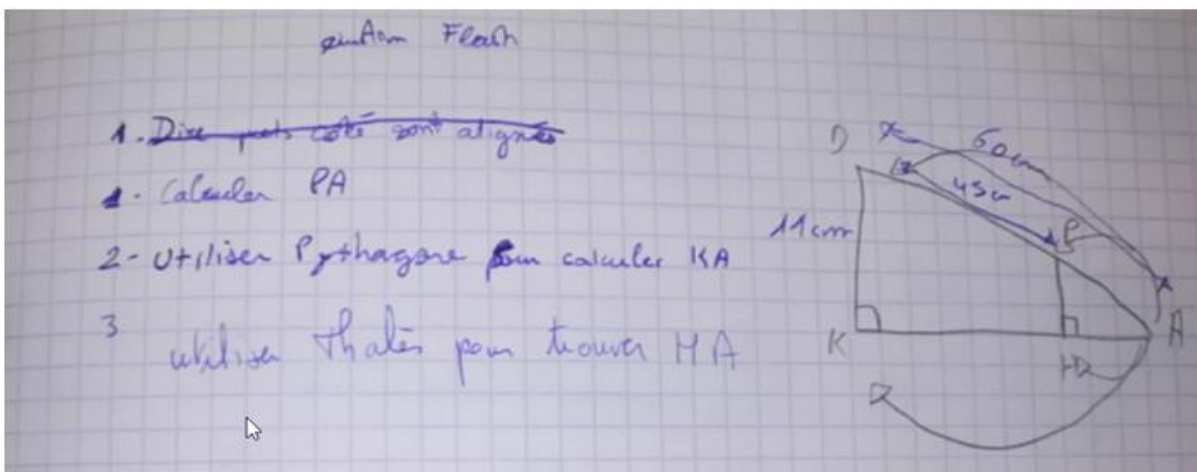 Flash
1. Dire quels coté sont alignés
1. Calculer PA
2- Utiliser Pythagore pour calculer KA
3
utiliser Thalès pour trouver HA
D
60cm
45cm
P
11cm
K
H
A